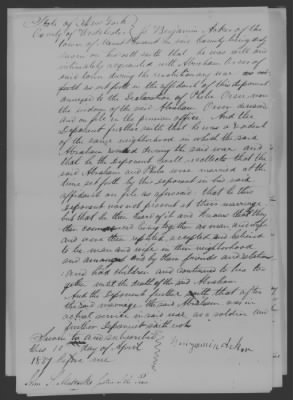 State of New York
County of Westchester Benjamin Acker of the
town of Mount Pleasant in said County being duly
sworn on his oath saith that he was well and
intimately acquainted with Abraham Orser of
said town during the revolutionary war as set
forth as set forth in the affidavit of this deponent
annexed to the Declaration of Phila Orser now
the widow of the said Abraham Orser deceased
and on file in the pension office. And this
Deponent further saith that he was a resident
of the same neighborhood in which the said
Abraham during the said war and
that he the deponent well recollects that the
said Abraham and Phila were married at the
time set forth by this deponent in his said
affidavit on file as aforesaid that he this
deponent was not present at their marriage
but that he then heard of it and knows that they
then commenced living together as man and wife
and were then reputed, accepted and believed
to be man and wife in their neighborhood
and by their friends and relations
and had children and continued to live to-
gether until the death of the said Abraham
And the deponent further saith that after
the said marriage the said Abraham was in
actual service in said war as a soldier and
further deponent saith not
Sworn to and subscribed
this 10 day of April Benjamin Acker
1837 before me